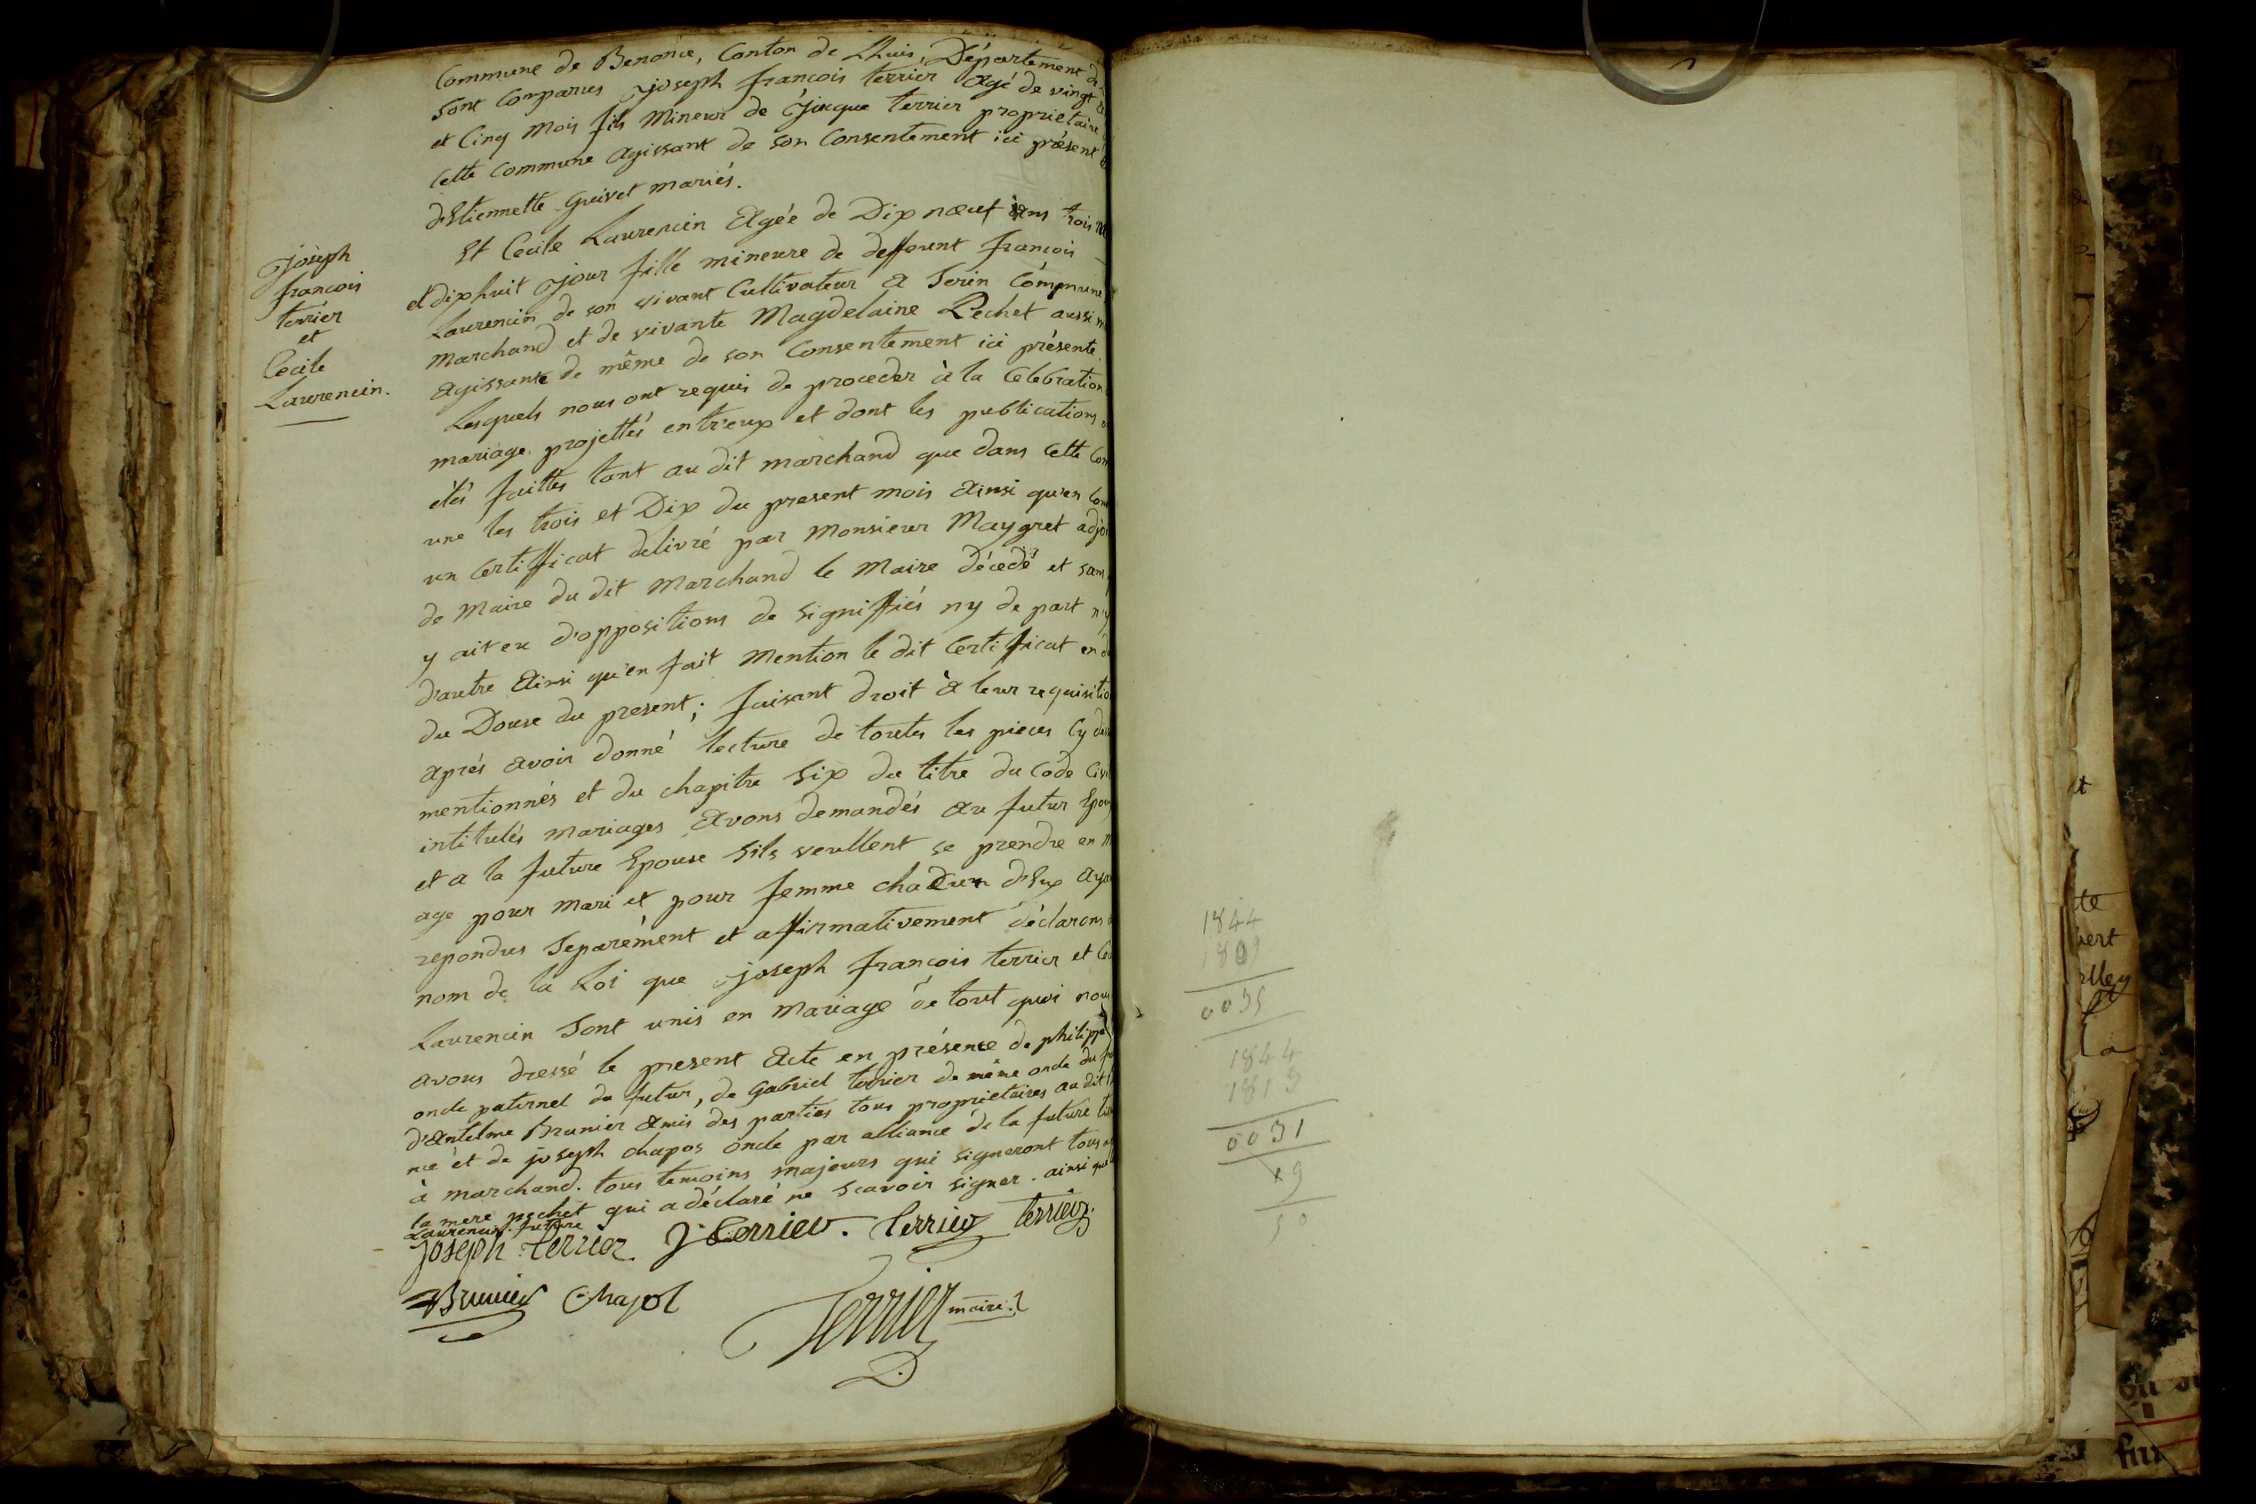 Commune de Benonce, Canton de Lhuis, Département de
sont comparus joseph françois terrier Agé de vingt
et Cinq mois fils Mineur de Jâcque terrier propriétaire
Cette Commune Agissant de son Consentement ici présent
d'Etiennette Guivet mariés.
Joseph
françois
terrier
et
Cécile
Laurencin.
Et Cecile Laurencin Agée de Dix nœuf ans trois
et dix huit jour fille mineure de deffount françois
Laurencin de son vivant Cultivateur a Serin Commune
Marchand et de vivante Magdelaine Pechet aussi
Agissante de même de son Consentement ici présente.
Lesquels nous ont requis de proceder à la Celebration
mariage projettés entr'eux et dont les publications
étés faittes tant au dit marchand que dans Cette Com
une les trois et Dix du present mois Ainsi qu'en
un Certifficat delivré par Monsieur Maygret adjoi
de Maire du dit Marchand le Maire décedé et sans
y ait eu d'oppositions de signiffiés ny de part ny
d'autre Ainsi qu'en fait Mention le dit Certifficat en d
du Douse du present; faisant droit à leur requisitio
aprés avoir donné lecture de toutes les pieces Cy
mentionnés et du chapitre Six du titre du Code Civi
intitulés mariages Avons demandés au futur Epou
et a la future Epouse Sils veullent se prendre en M
age pour mari et pour femme chaCun d'Eux Aya
repondus Separément et affirmativement déclarons
nom de la Loi que joseph françois terrier et Ce
Laurencin Sont unis en Mariage de tout quoi nous
avons dressé le present Acte en présence de philippe
oncle paternel du futur, de Gabriel terrier de même oncle du fu
d'Antelme Brunier Amis des parties tous proprietaires au dit
nce et de joseph chapos oncle par alliance de la future
à marchand. tous temoins majeurs qui signeront tous
la mere pechet qui a déclaré ne scavoir signer. ainsi que
Laurencin future
joseph terrier J terrier. terrier terrier
Brunier Chapot
Terrier maire
1844
1809
0035
1844
1813
0031
19
50